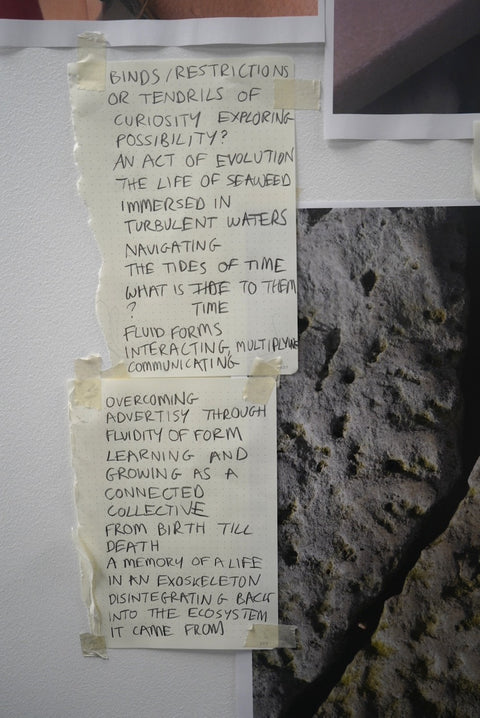 BINDS/RESTRICTIONS
OR TENDRILS OF
CURIOSITY EXPLORING
POSSIBILITY?
AN ACT OF EVOLUTION
THE LIFE OF SEAWEED
IMMERSED IN
TURBULENT WATERS
NAVIGATING
THE TIDES OF TIME
WHAT IS TIDE TO THEM
? TIME
FLUID FORMS
INTERACTING, MULTIPLYING
COMMUNICATING
OVERCOMING
ADVERTISY THROUGH
FLUIDITY OF FORM
LEARNING AND
GROWING AS A
CONNECTED
COLLECTIVE
FROM BIRTH TILL
DEATH
A MEMORY OF A LIFE
IN AN EXOSKELETON
DISINTEGRATING BACK
INTO THE ECOSYSTEM
IT CAME FROM